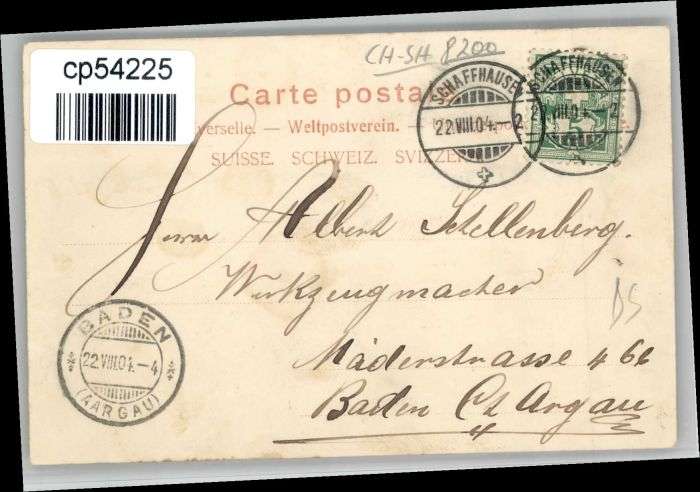 CH-SH 8200
cp54225
Carte posta
verselle. — Weltpostverein. —
SUISSE. SCHWEIZ. SVIZZE
SCHAFFHAUSEN
22.VIII.04.-2
SCHAFFHAUSEN
22.VIII.04.-2
5
Herrn Albert Schellenberg.
Werkzeugmacher
Mäderstrasse 466
Baden Ct Argau
DS
BADEN
22.VIII.04.-4
(AARGAU)